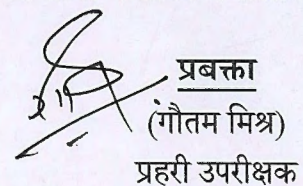 प्रबक्ता
(गौतम मिश्र)
प्रहरी उपरीक्षक